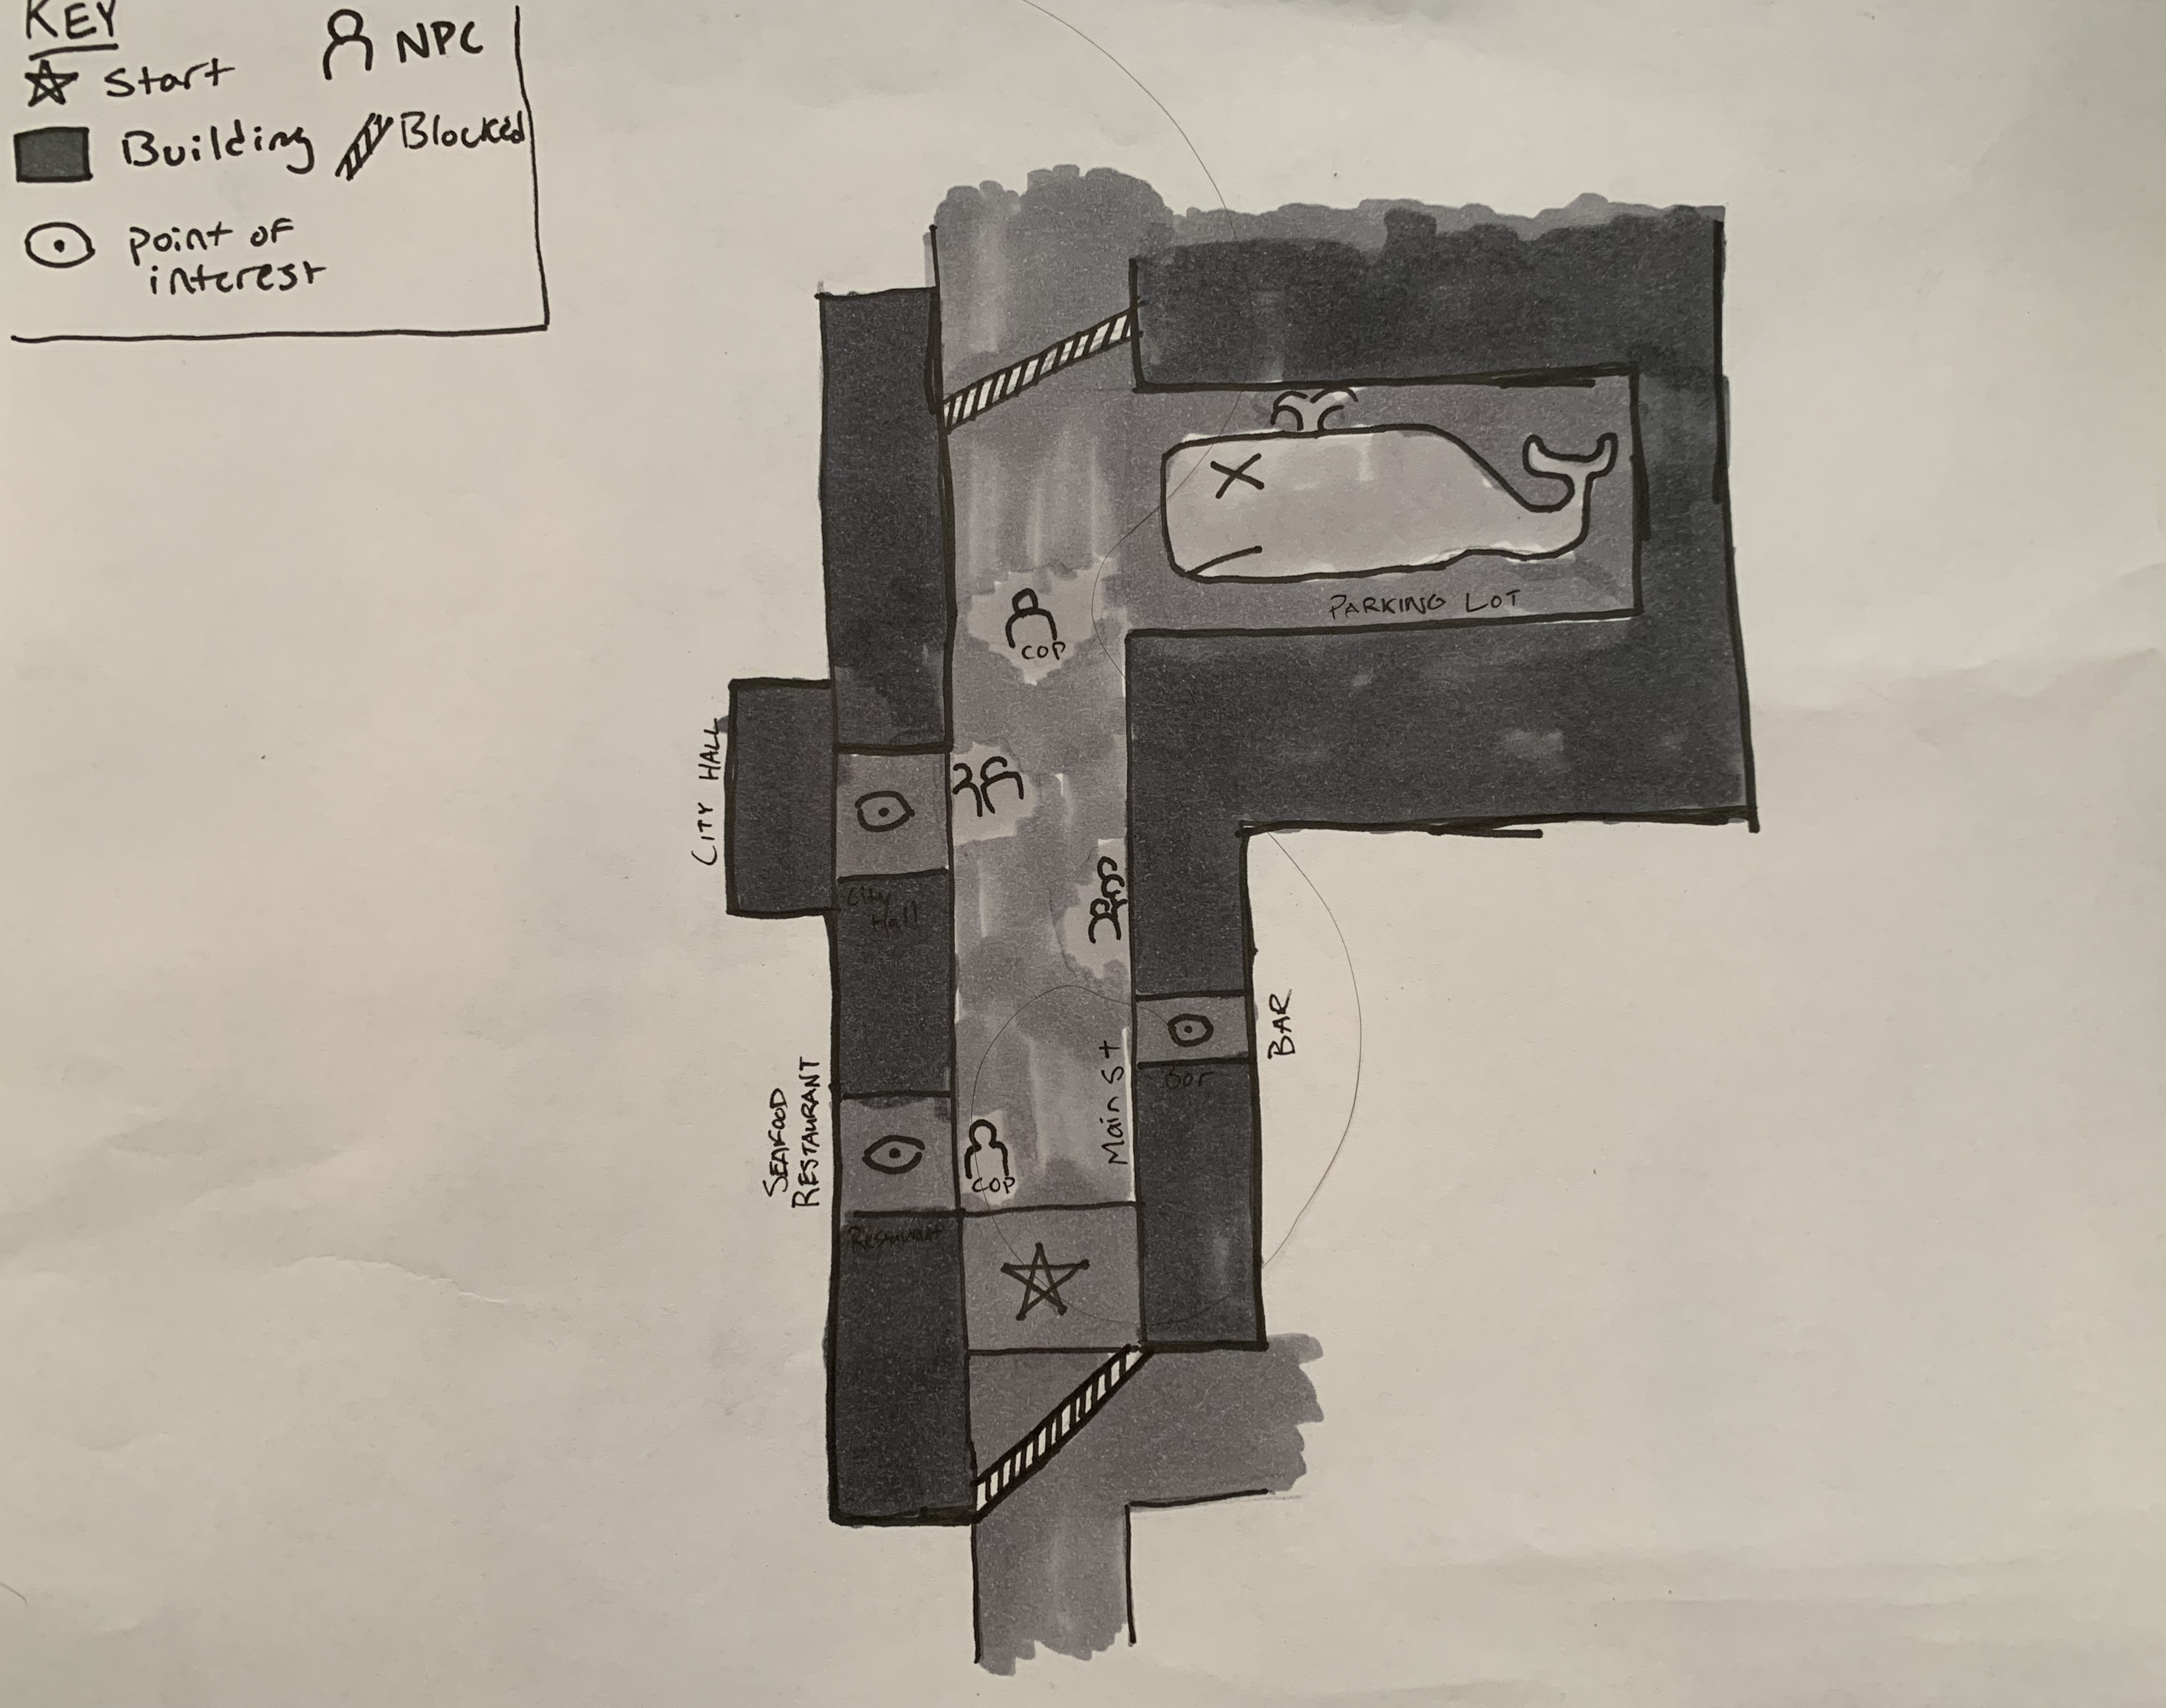 KEY
Start
NPC
Building
Blocked
point of
interest
PARKING LOT
COP
CITY HALL
City
Hall
BAR
Bar
Main St
SEAFOOD
RESTAURANT
COP